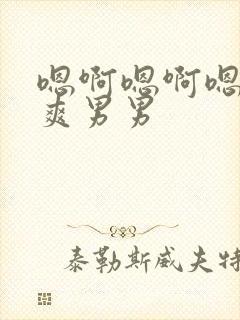 嗯啊嗯啊嗯
爽男男
泰勒斯威夫特